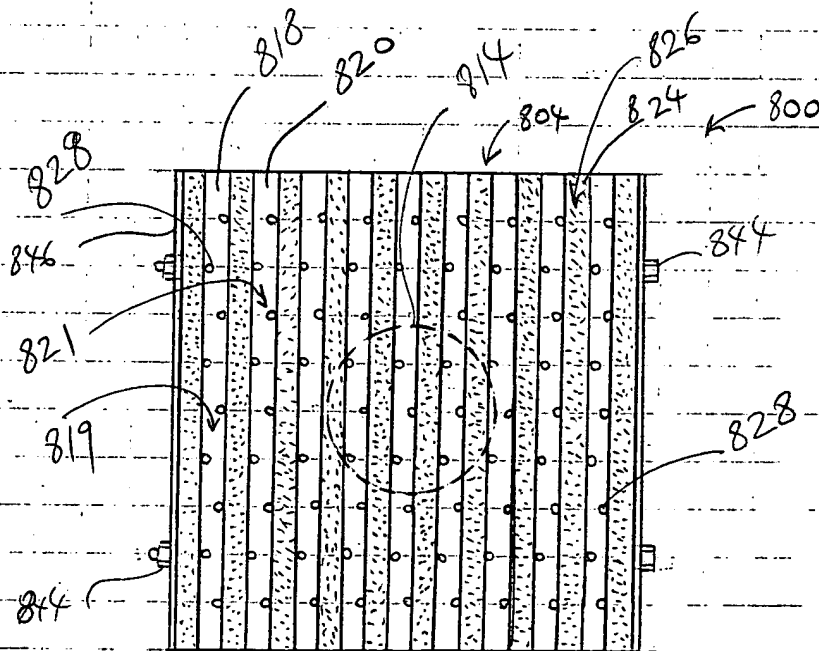 818
820
814
826
804
824
800
828
846
844
821
819
828
844